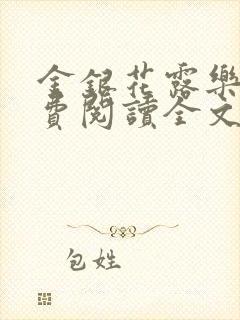 金銀花露樂
費閱讀全文
包姓